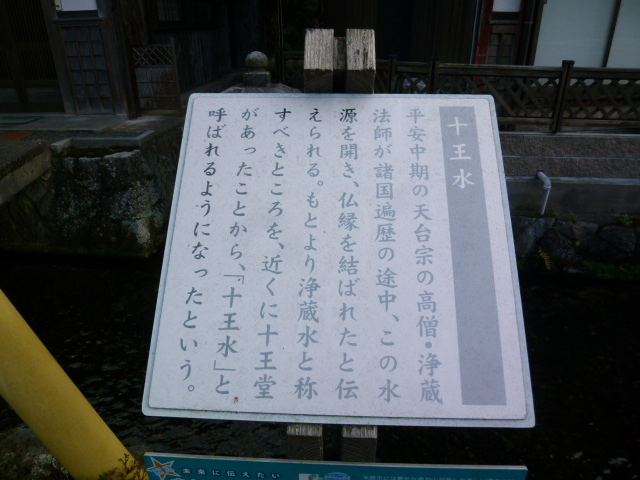 十王水
平安中期の天台宗の高僧・浄蔵
法師が諸国遍歴の途中、この水
源を開き、仏縁を結ばれたと伝
えられる。もとより浄蔵水と称
すべきところを、近くに十王堂
があったことから、「十王水」と
呼ばれるようになったという。
未来に伝えたい